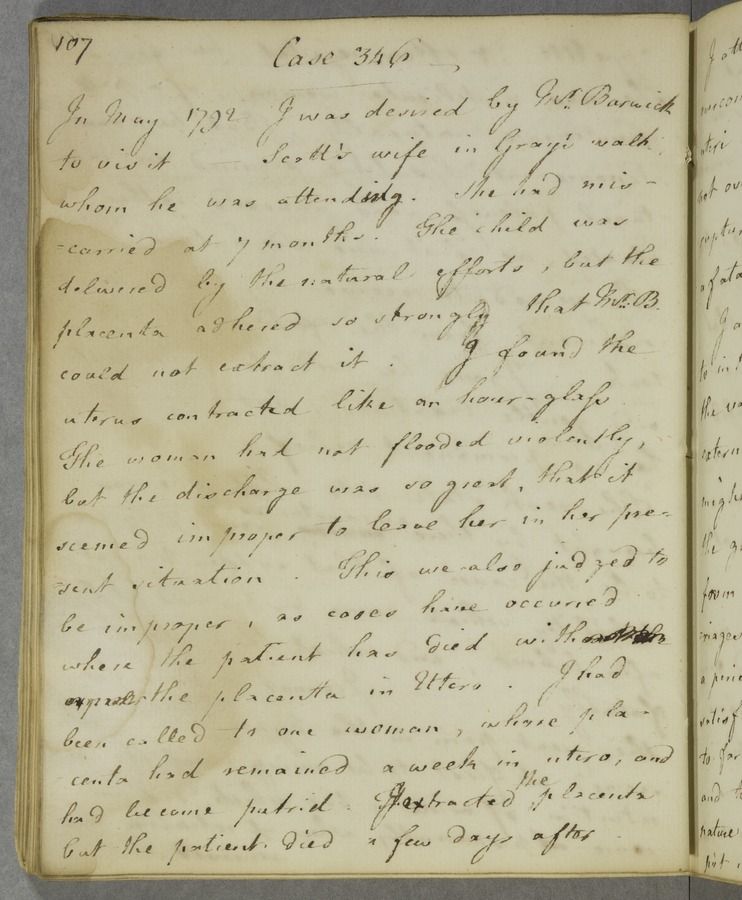 107
Case 346
In May 1792 I was desired by Mr. Barwick
to visit — Scott's wife in Gray's walk
whom he was attending. She had mis-
-carried at 7 months. The child was
delivered by the natural efforts, but the
placenta adhered so strongly that Mr. B.
could not extract it. I found the
uterus contracted like an hour-glass
The woman had not flooded violently,
but the discharge was so great, that it
seemed improper to leave her in her pre-
-sent situation. This we also judged to
be improper, as cases have occurred
where the patient has died with
the placenta in Utero. I had
been called to one woman, whose pla-
centa had remained a week in utero, and
had become putrid. I extracted the placenta
but the patient died a few days after